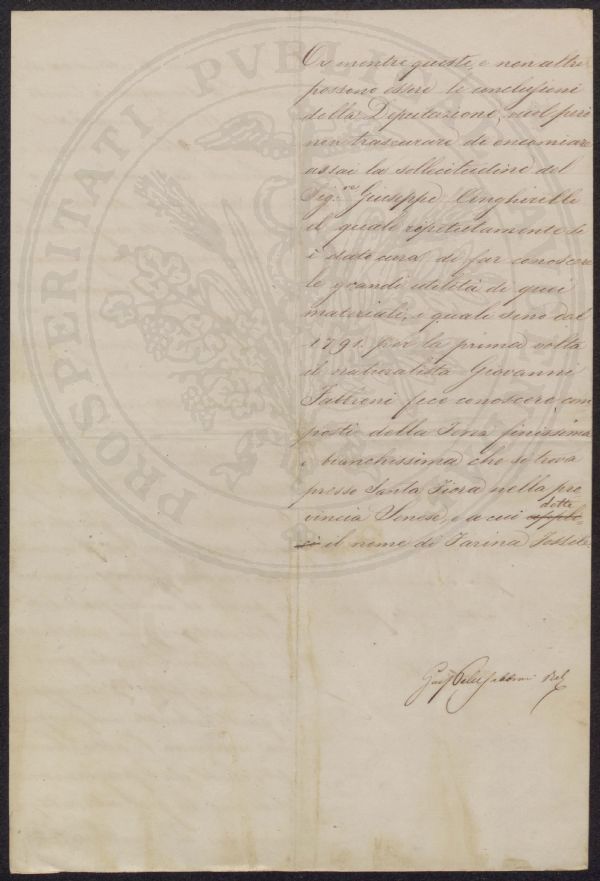 PROSPERITATI PVBLICAE
Or mentre queste e non altre
possono essere le conclusioni
della Deputazione, vuol però
non trascurare di encomiare
assai la sollecitudine del
Sig.re Giuseppe Cinghirelli
il quale ripetutamente si
è dato cura di far conoscere
le grandi utilità di quei
materiali, e quali sino dal
1791. per la prima volta
il naturalista Giovanni
Fabbroni fece conoscere com
posti della Terra finissima
e bianchissima che si trova
presso Santa Fiora nella pro
vincia Senese, e a cui dette
il nome di Farina Fossile.